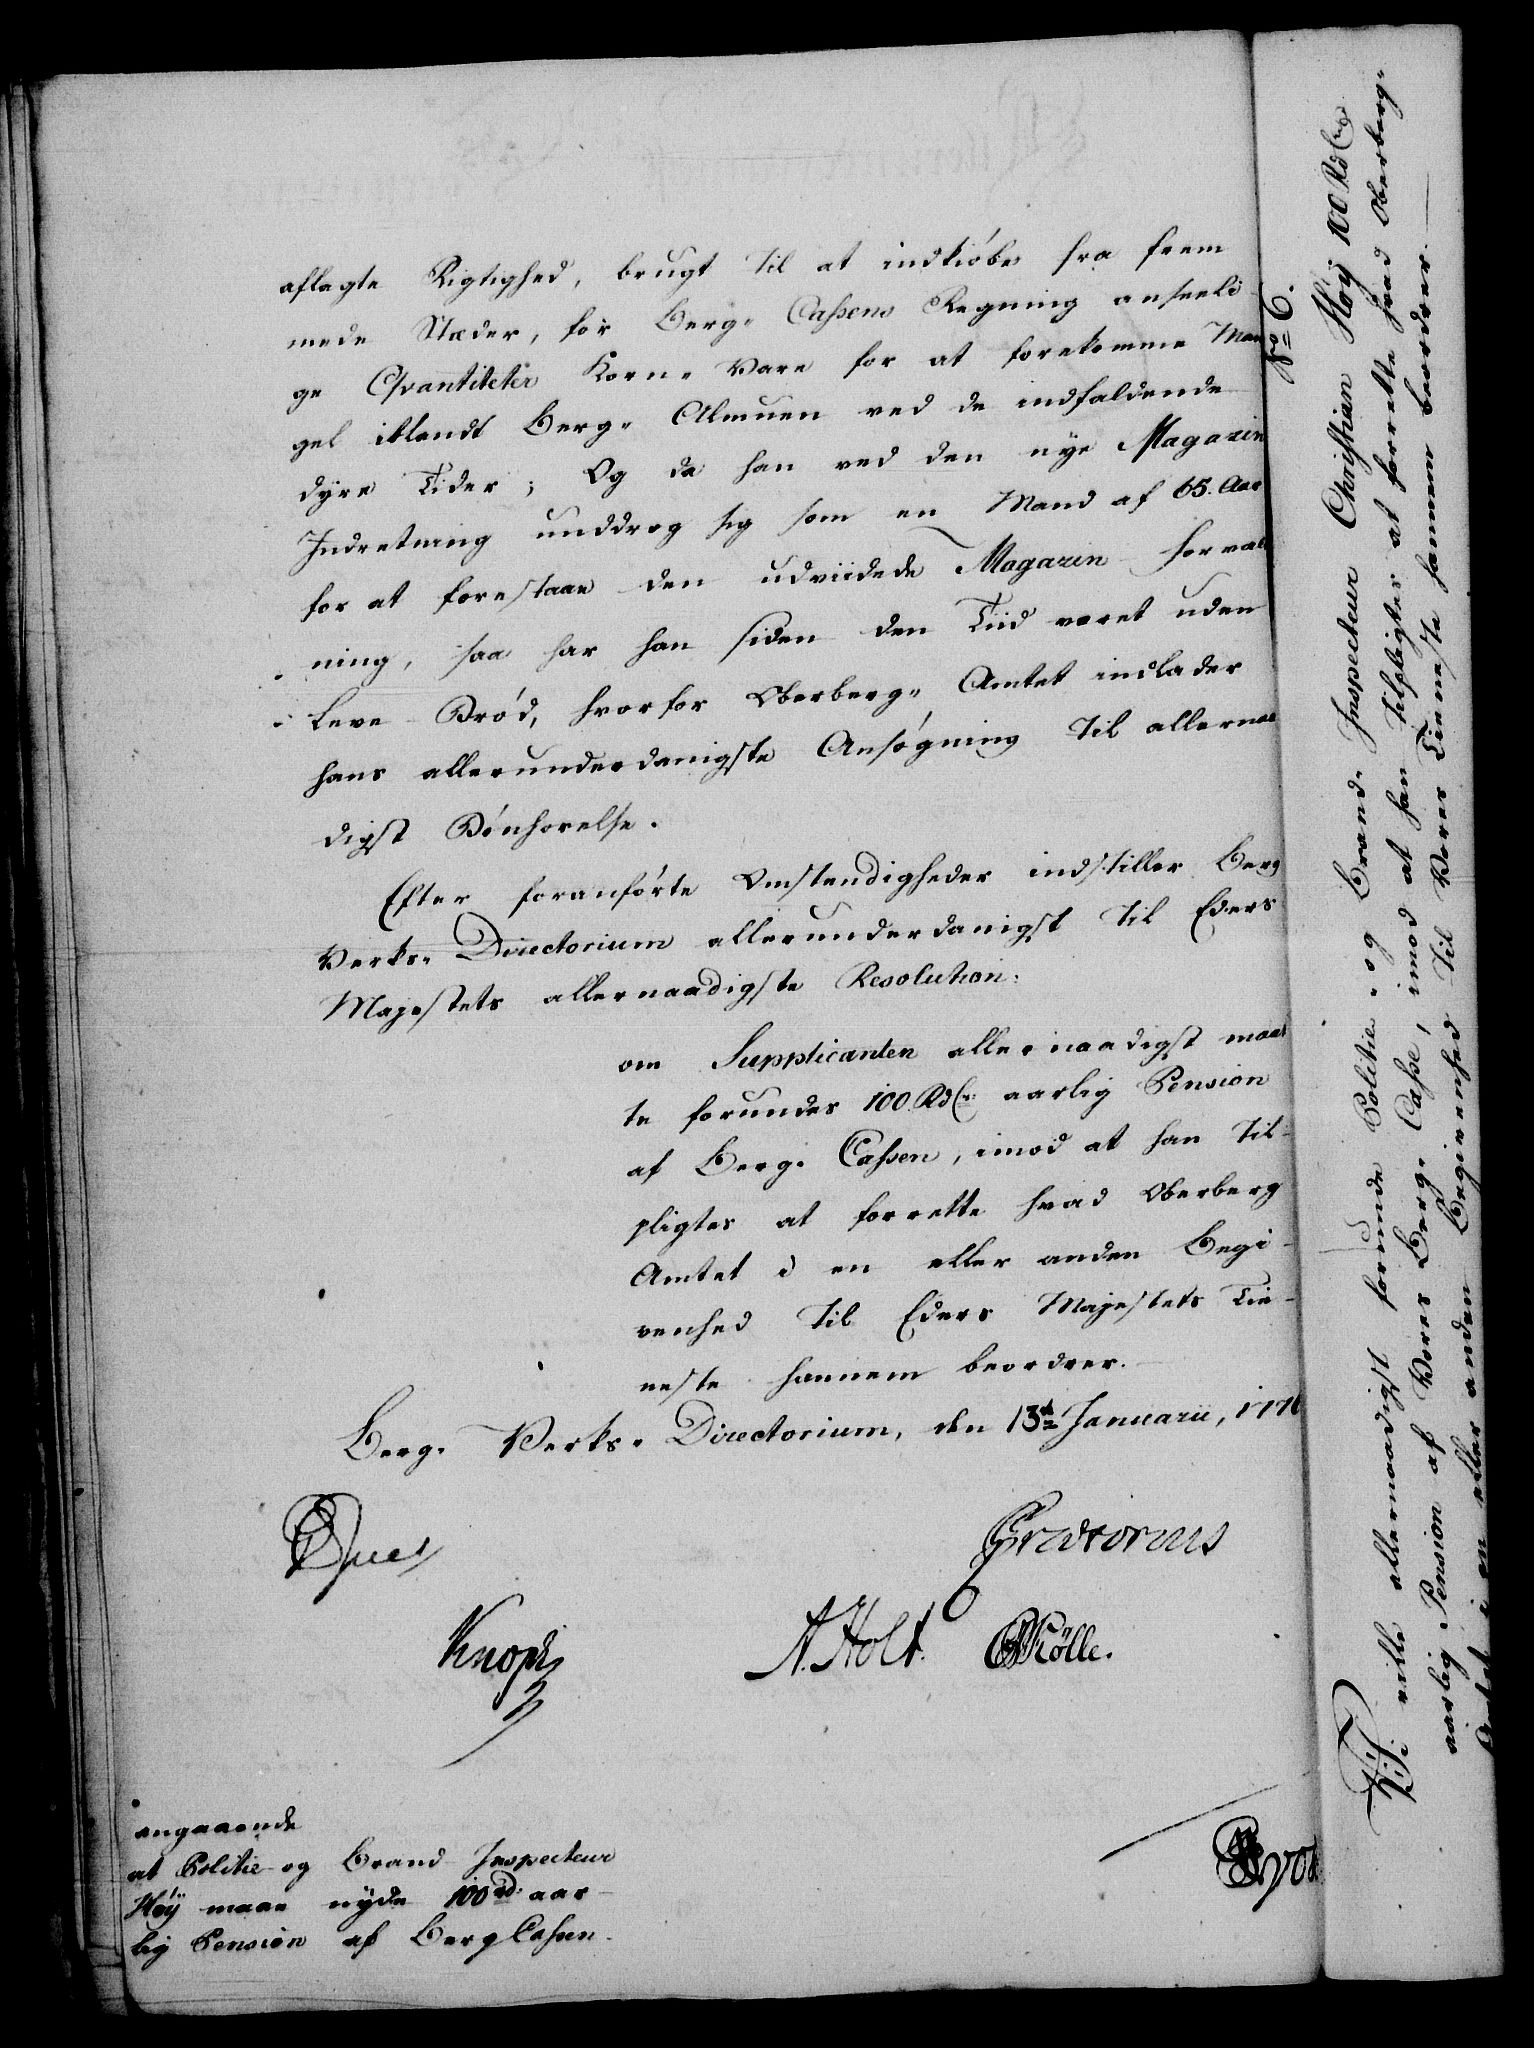 aflagte Rigtighed, brugt til at indkiöbe fra frem
mede Stæder, for Berg-Cassens Regning anseeli
ge Qvantiteter Korn-Vare for at forekomme Man
gel iblandt Berg-Almuen ved de indfaldende
dyre Tider; Og da han ved den nye Magazin
Indretning unddrog sig som en Mand af 65. Aar
for at forestaae den udviidede Magazin-Forvalt
ning, saa har han siden den Tiid været uden
Leve-Bröd, hvorfor Oberberg-Amtet indlader
hans allerunderdanigste Ansögning til allernaa
digst Bönhörelse.
Efter foranförte Omstændigheder indstiller Berg
Verks-Directorium allerunderdanigst til Eders
Majestets allernaadigste Resolution:
om Supplicanten allernaadigst maat
te forundes 100 Rdlr. aarlig Pension
af Berg-Cassen, imod at han til-
pligtes at forrette hvad Oberberg
Amtet i en eller anden Begi-
venhed til Eders Majestets Tie-
neste hannem beordrer.
Berg-Verks-Directorium, den 13de Januarii, 1776
Prætorius
Knoph
A. Holt. Kölle.
angaaende
at Politie og Brand-Inspecteur
Höÿ maae nyde 100 rd. aar-
lig Pension af BergCassen.
No 6.
Vi ville allernaadigst forunde Politie- og Brand-Inspecteur Christian Höÿ 100 Rdlr
aarlig Pension af Vores Berg-Casse, imod at han tilpligtes at forrette hvad Oberberg-
Amtet i en eller anden Begivenhed til Vores Tieneste hannem beordrer.